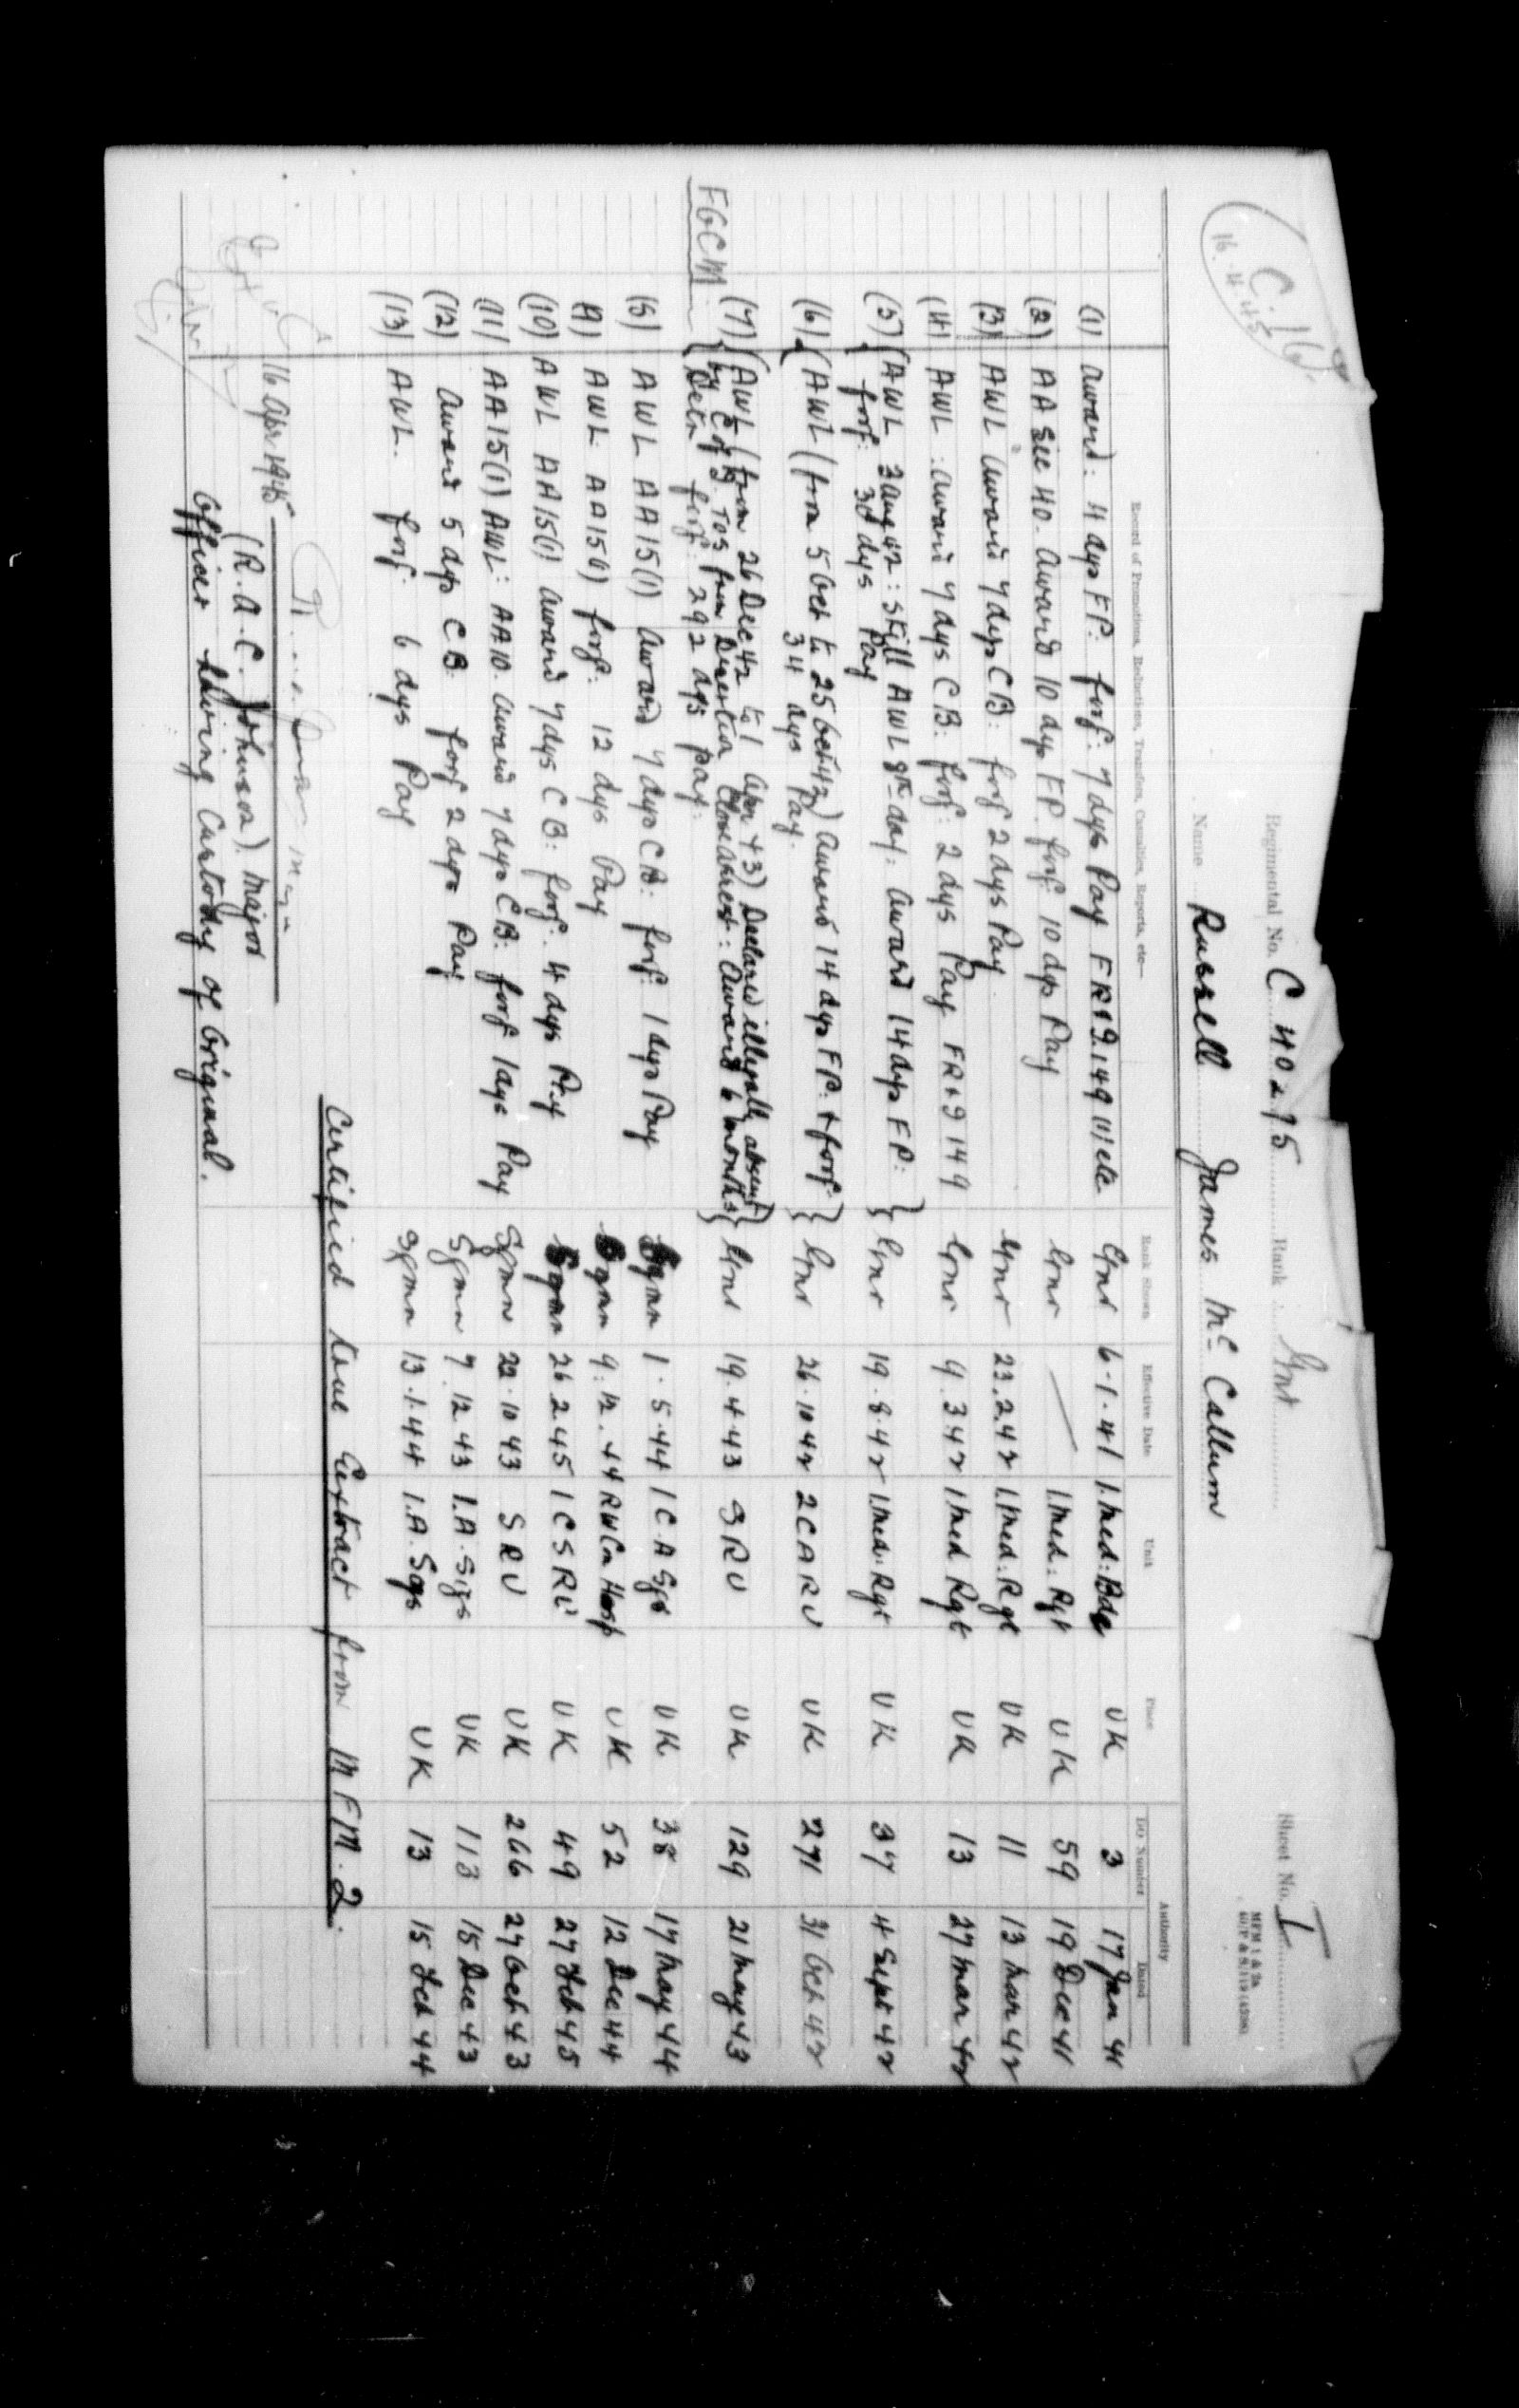 C. 16.
16.4.45
Regimental No. C 40295 Rank Gnr Sheet No. I
MFM 1 & 2a
Name Russell James Mc Callum
Record of Promotions, Reductions, Transfers, Casualties, Reports, etc— Rank Shown Effective Date Unit Place Authority
DO Number Dated
(1) Award: 4 dys FP: forf: 7 dys Pay FR & I 149 (1) etc Gnr 6.1.41 1.Med:Bde UK 3 17 Jan 41
(2) AA Sec 40. Award 10 dys FP. forf: 10 dys Pay Gnr 1.Med: Rgt UK 59 19 Dec 41
(3) AWL Award 7 dys CB: forf 2 dys Pay Gnr 23.2.42 1.Med:Rgt UK 11 13 Mar 42
(4) AWL: Award 7 dys CB: forf: 2 dys Pay FR & I 149 Gnr 9.3.42 1 Med Rgt UK 13 27 Mar 42
(5) AWL 3 Aug 42: Still AWL 8th day: Award 14 dys FP: Gnr 19.8.42 1.Med:Rgt UK 37 4 Sept 42
forf: 30 dys Pay
(6) AWL (from 5 Oct to 25 Oct 42) Award 14 dys FP: & forf: Gnr 26.10.42 2CARU UK 271 31 Oct 42
34 dys Pay.
(7) AWL (from 26 Dec 42 to 1 Apr 43) Declared illegally absent
by C of I. TOS from Desertion Close Arrest: Award 6 months Gnr 19.4.43 SRU UK 129 21 May 43
FGCM Detn forf: 292 dys pay:
(8) AWL AA 15(1) Award 7 dys CB: forf: 1 dys Pay Sgmn 1.5.44 1 C A Sgs UK 38 17 May 44
9) AWL: AA 15(1) forf: 12 dys Pay Sgmn 9.12.44 Hosp UK 52 12 Dec 44
(10) AWL AA 15(1) Award 7 dys CB: forf: 4 dys Pay Sgmn 26 2 45 1 CSRU UK 49 27 Feb 45
(11) AA 15(1) AWL: AA 10. Award 7 dys CB: forf 1 dys Pay Sgmn 22.10 43 SRU UK 266 27 Oct 43
(12) Award 5 dys CB. forf 2 dys Pay Sgmn 7.12 43 1.A.Sigs UK 113 15 Dec 43
(13) AWL. forf: 6 dys Pay Sgmn 13.1.44 1.A.Sgs UK 13 15 Feb 44
Certified true Extract from MFM.2.
16 Apr 1945
(R.A.C. Johnson) Major
Officer having Custody of Original.